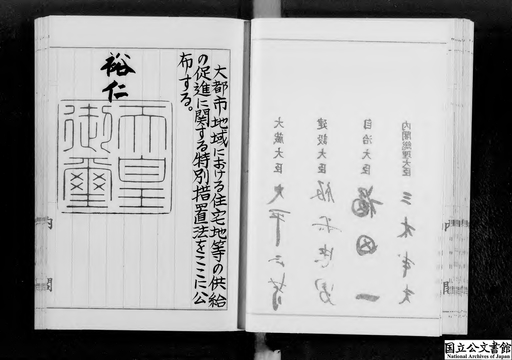 内閣総理大臣 三木武夫
自治大臣 福田一
建設大臣 仮谷忠男
大蔵大臣 大平正芳
大都市地域における住宅地等の供給
の促進に関する特別措置法をここに公
布する。
裕仁
天皇
御璽
内閣
国立公文書館
National Archives of Japan